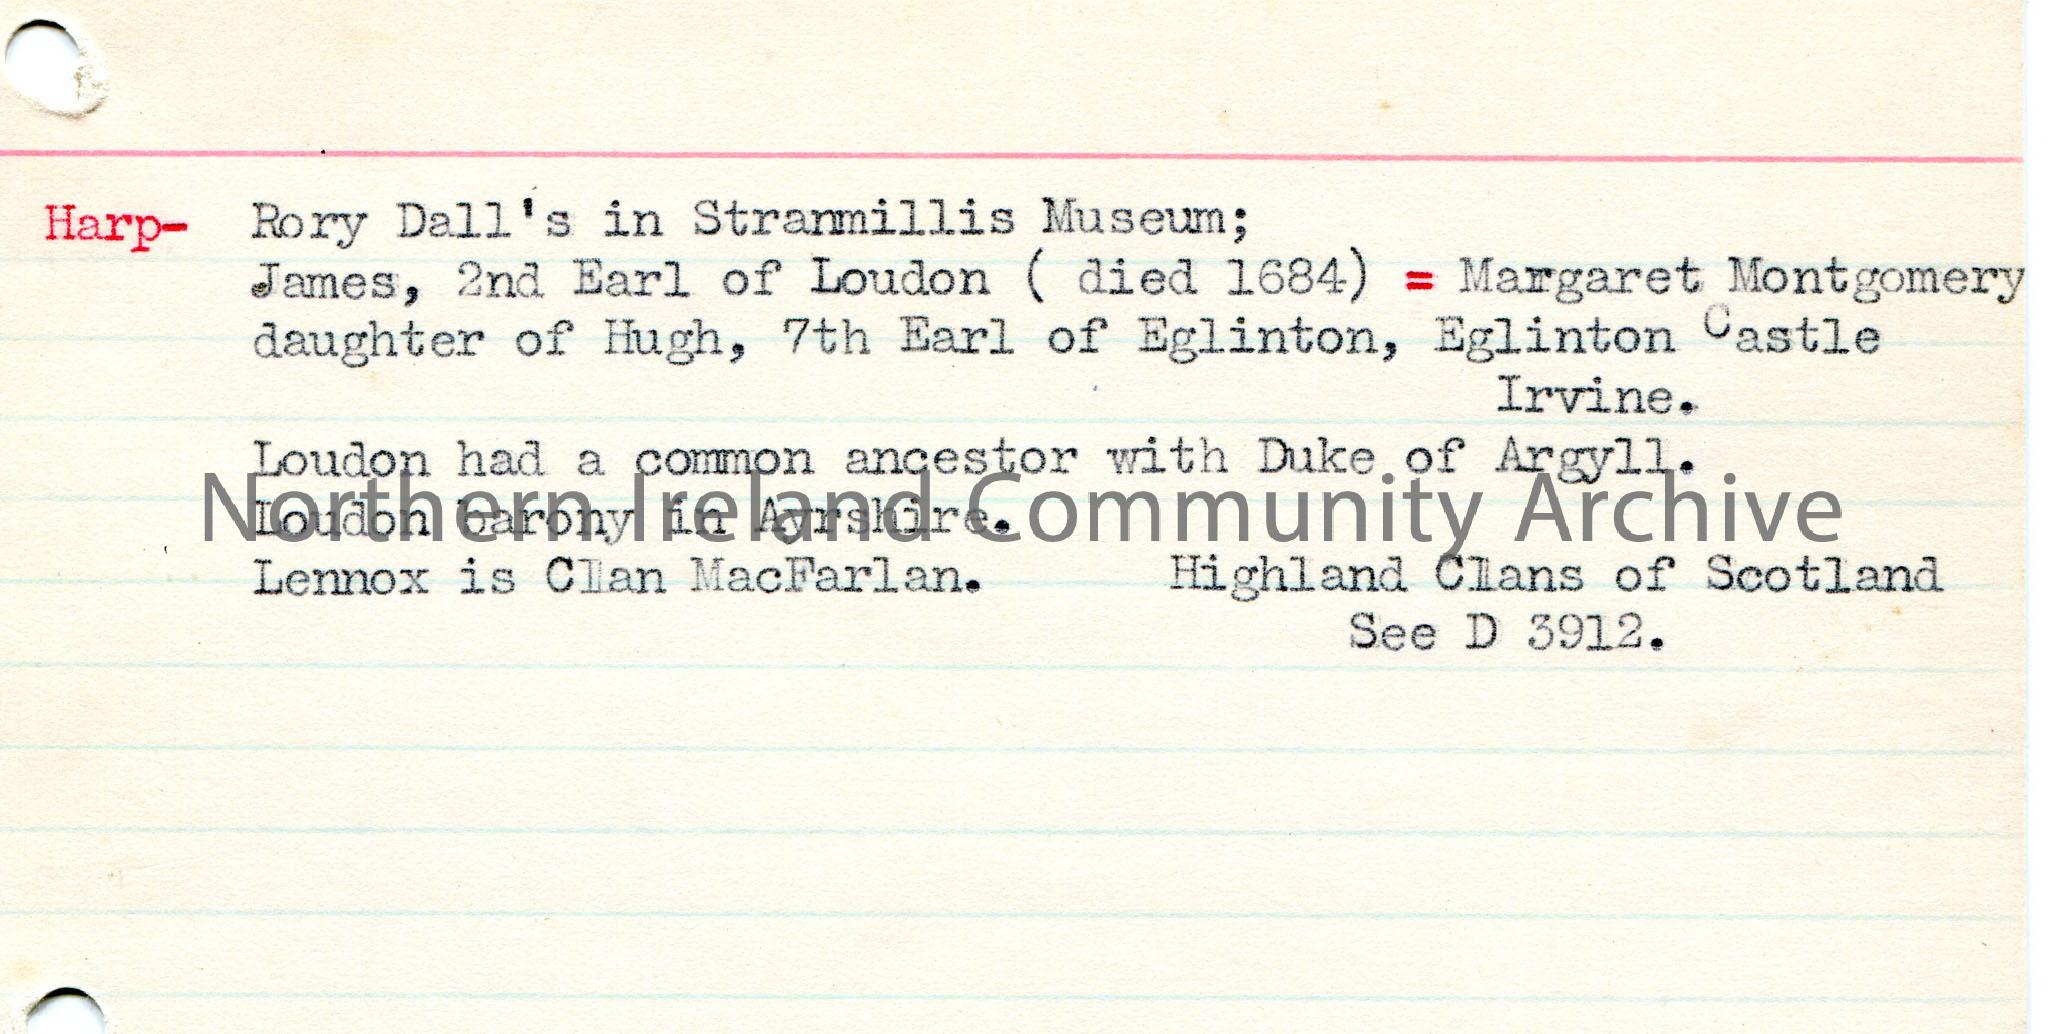 Harp- Rory Dall's in Stranmillis Museum;
James, 2nd Earl of Loudon ( died 1684) = Margaret Montgomery
daughter of Hugh, 7th Earl of Eglinton, Eglinton Castle
Irvine.
Loudon had a common ancestor with Duke of Argyll.
Northern Ireland Community Archive
Loudon barony in Ayrshire.
Lennox is Clan MacFarlan. Highland Clans of Scotland
See D 3912.